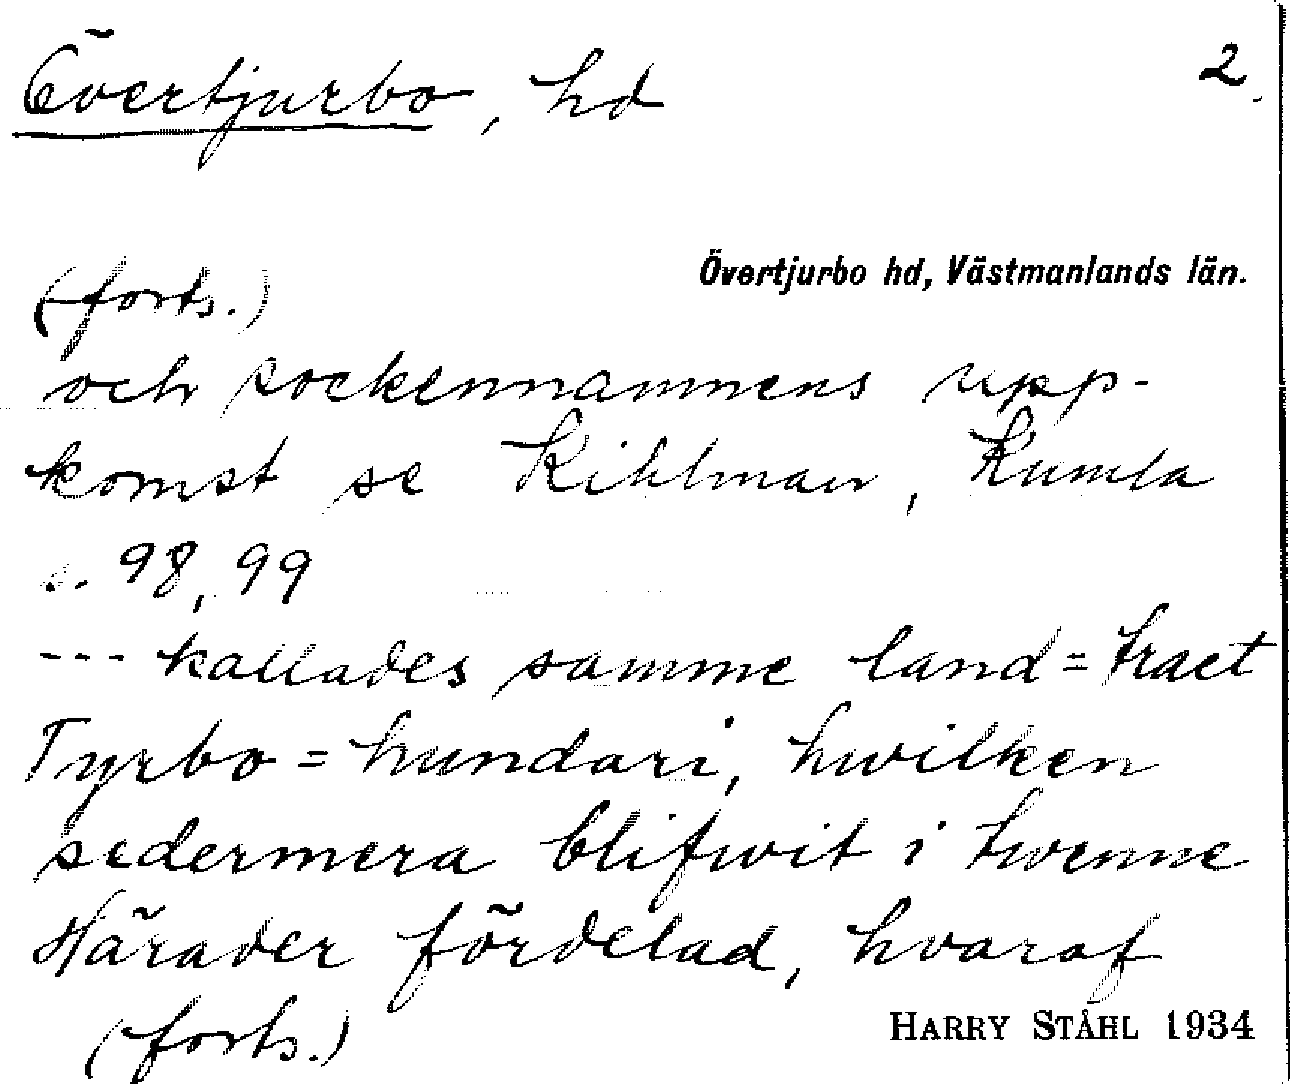 Övertjurbo, hd 2.
Övertjurbo hd, Västmanlands län.
(forts.)
och sockennamnens upp-
komst se Kihlman, Kumla
s. 98, 99
--- kallades samme land=tract
Tyrbo=hundari, hwilken
sedermera blifwit i twenne
Härader fördelad, hvaraf
(forts.)
HARRY STÅHL 1934